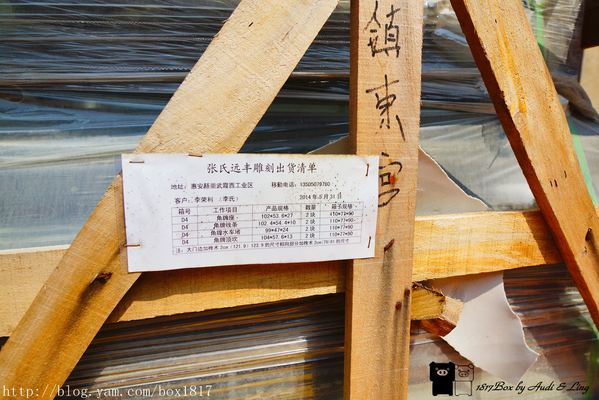 鎮東宮
张氏远丰雕刻出货清单
地址: 惠安县崇武霞西工业区 移動电话: 13505079780
客户: 李荣利 (李氏) 2014年5月31日
箱号 工作项目 产品规格 数量 箱子规格
04 角牌座 102*53.6*27 2块 110*72*90
04 角牌线条 102.4*54.4*10 2块 110*77*90
04 角牌水车堵 99*47*24 2块 110*77*90
04 角牌顶坎 104*57.6*13 2块 110*77*90
http://blog.yam.com/box1817
1817Box by Audi & Ling